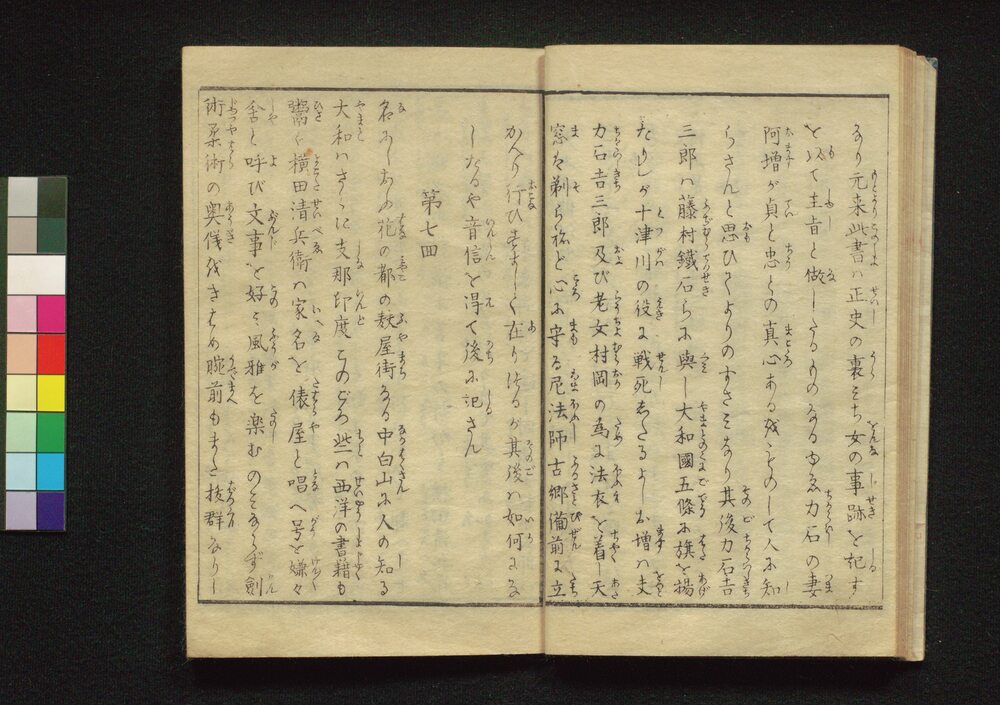 なり元来此書ハ正史の裏にち女の事跡を記す
を以て主音と做したるものなるゆゑ力石の妻
阿増が貞と忠との真心ある残をものして人に知
らさんと思ひしよりのすさミなり其後力石吉
三郎ハ藤村鐵石らに與し大和國五條に旗を揚
たりしが十津川の役に戦死したるよしお増ハ夫
力石吉三郎及び老女村岡の為に法衣を着し天
窓を剃らねど心に守る尼法師古郷備前に立
かへり行ひすまして在りけるが其後ハ如何にな
しなるや音信を得て後に記さん
第七四
名にしおふ花の都の麩屋街なる中白山に人の知る
大和ハさらに支那印度このごろ些ハ西洋の書籍も
鬻く横田清兵衛ハ家名を俵屋と唱へ号を嫌々
舎と呼び文事を好ミ風雅を楽むのミならず劍
術柔術の奥儀をきはめ腕前もまた抜群なりし